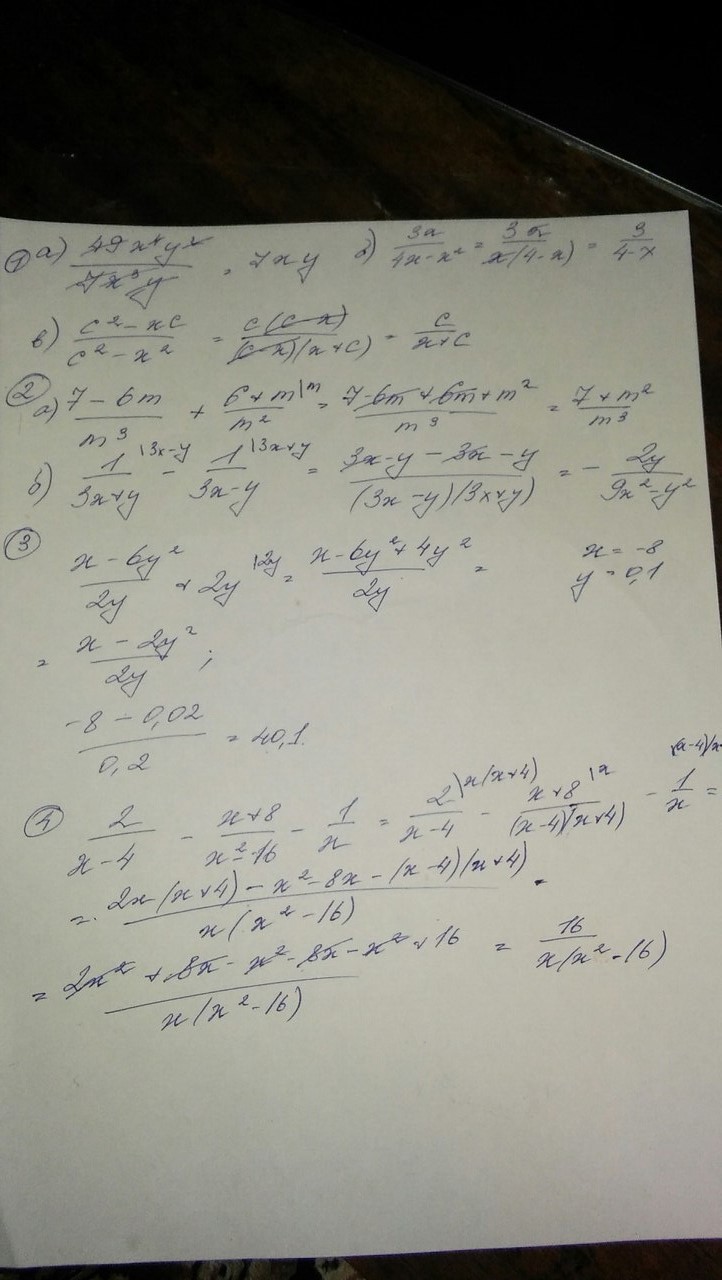 ① а) 49x⁴y² / 7x³y = 7xy б) 3x / 4x-x² = 3x / x(4-x) = 3 / 4-x
в) c²-xc / c²-x² = c(c-x) / (c-x)(x+c) = c / x+c
② а) 7-6m / m³ + 6+m |m / m² = 7-6m+6m+m² / m³ = 7+m² / m³
б) 1 |3x-y / 3x+y - 1 |3x+y / 3x-y = 3x-y-3x-y / (3x-y)(3x+y) = - 2y / 9x²-y²
③ x-6y² / 2y + 2y |2y = x-6y²+4y² / 2y = x=-8
y=0,1
= x-2y² / 2y ;
-8-0,02 / 0,2 = 40,1.
④ 2 / x-4 - x+8 / x²-16 - 1 / x = 2 |x(x+4) / x-4 - x+8 |x / (x-4)(x+4) - 1 / x =
= 2x(x+4)-x²-8x-(x-4)(x+4) / x(x²-16)
= 2x²+8x-x²-8x-x²+16 / x(x²-16) = 16 / x(x²-16)